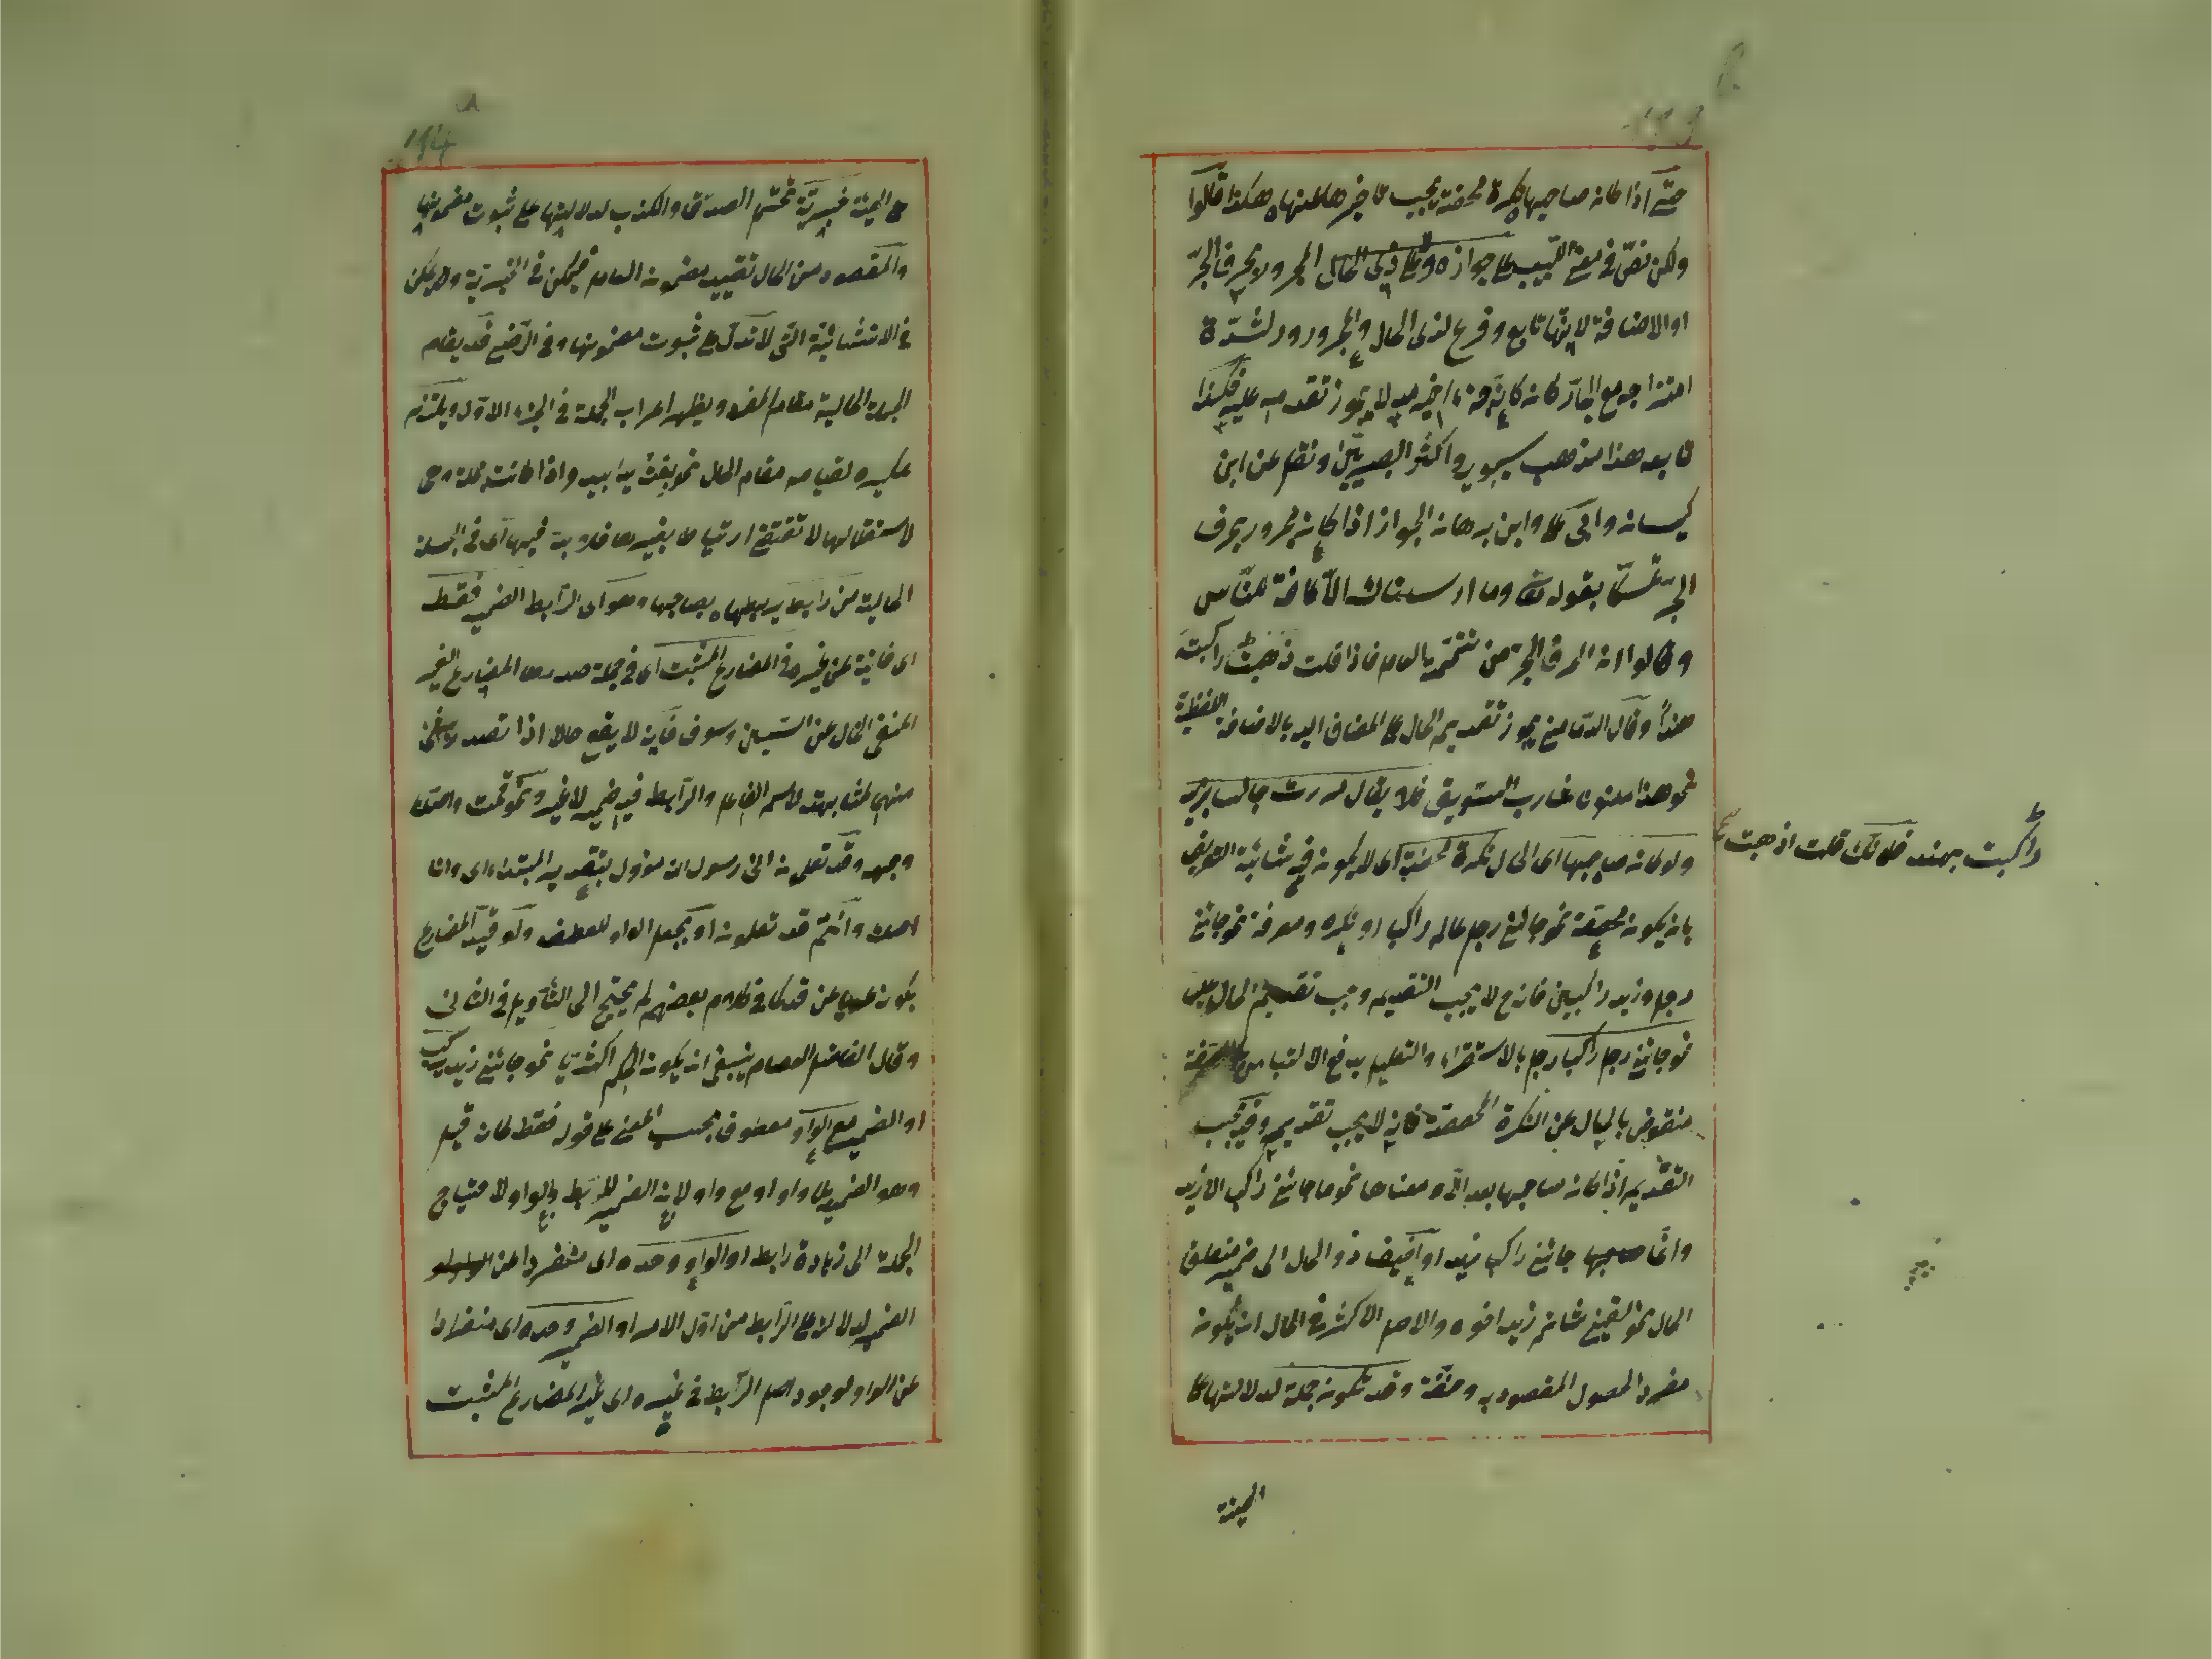 حتى اذا كانه صاحبها نكرة محضة يجب تاخيرها عنها هكذا قالوا
ولكن نص في مغني اللبيب على جوازه وعلى ذي الحال المجرور بحرف الجر
او الاضافة لانها تابع وفرع لذى الحال والمجرور ولشدة
امتزاجه مع الجار كانه كانه جزء اخير منه لا يجوز تقدمه عليه فكذا
تابعه هذا مذهب سيبويه واكثر البصريين ونقل عن ابن
كيسانه وابى على وابن برهانه الجواز اذا كانه مجرور بحرف
الجر تمسكا بقوله تعالى وما ارسلناك الا كافة للناس
وقالوا انه الحرف الجر من تتمة العامل فاذا قلت ذهبت راكبة
هندا وقال الدمامينى يجوز تقديم الحال على المضاف اليه بالاضافة اللفظية
نحو هذا ملتوتا شارب السويق فلا يقال مررت جالسا بزيد
ولو كانه صاحبها اى الحال نكرة محضة اى لا يكونه فيه شائبة التعريف
بانه يكونه مخصصة نحو جائنى رجل عالم راكبا او نكره ومعرفة نحو جائنى
رجل وزيد راكبين فانه ح لا يجب التقديم وجب تقديم الحال عليه
نحو جائنى رجل راكبا رجل بالاستقراء والتعليل بدفع الالتباس بالصفة
منقوض بالحال عن النكرة المخصصة فانه لا يجب تقديمه وقد يجب
التقديم اذا كانه صاحبها بعد الا ومعناها نحو ما جائنى راكبا الا زيد
وانما جائنى راكبا زيد او اضيف ذو الحال الى ضمير متعلق
الحال نحو لقينى شاتم زيد اخوه والاصل الاكثر في الحال ان يكونه
مفردا لحصول المقصود به وخفته وقد تكونه جملة لدلالتها على
الهيئة
راكبت بهند فلانك قلت اذهبت
على الهيئة خبرية تحتمل الصدق والكذب لدلالتها على ثبوت مضمونها
والمقصود من الحال تقييد مضمونه العامل فيمكن في الخبرية ولا يمكن
في الانشائية التى لا تدل على ثبوت مضمونها وفي الرضى قد يقام
الجملة الحالية مقام المفرد ويظهر اعراب الجملة في الجزء الاول ويلتزم
تنكيره لقيامه مقام الحال نحو بعته يدا بيد واذا كانت جملة وهى
لاستقلالها لا تقتضى ارتباطا بغيرها فلا بد فيها اى في الجملة
الحالية من رابط يربطها بصاحبها وهو اى الرابط الضمير فقط
اى خالية عن غيره في المضارع المثبت اى في جملة صدرها المضارع الغير
المنفى الخال عن السين وسوف فانه لا يقع حالا اذا تصدر باحدى
منهى لمشابهته لاسم الفاعل والرابط فيه ضمير لا غير ونحو قمت واصك
وجهه وقد تعلمونه انى رسول الله مؤول بتقدير المبتداء اى وانا
اصك وانتم قد تعلمونه او بجعل الواو للعطف ولو قيد المضارع
بكونه عاريا عن قد كما في كلام بعضهم لم يحتج الى التأويل في الثانى
وقال الفاضل العصام ينبغى انه يكونه الحكم اكثريا نحو جائنى زيد يركب
او الضمير مع الواو معطوف بحسب المعنى على قوله فقط كانه قيل
وهو الضمير بلا واو او مع واو لانه الضمير للربط والواو لاحتياج
الجملة الى زيادة رابط او الواو وحده اى متفردا من
الضمير لدلالته على الرابط من اول الامر او الضمير وحده اى منفردا
عن الواو لوجود اصل الرابط في غيره اى غير المضارع المثبت